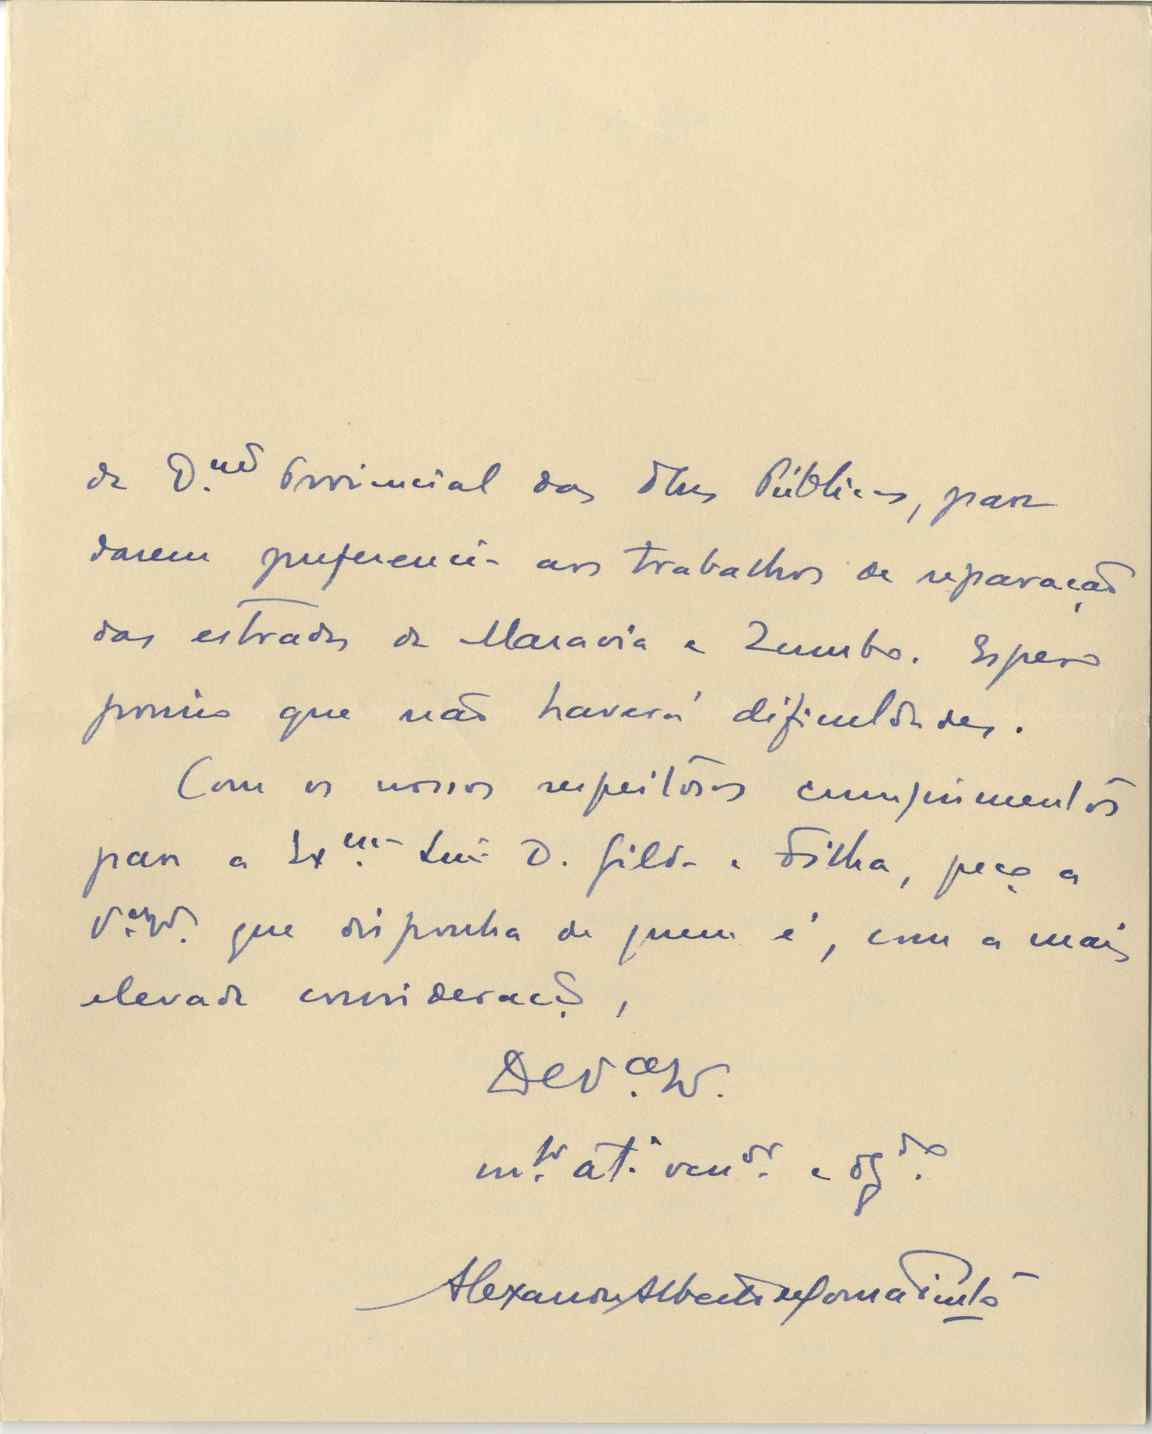 da D.ção Provincial das Obras Públicas, para
darem preferencia aos trabalhos de reparação
das estradas de Maravia e Zumbo. Espero
que não haverá dificuldades.
Com os nossos respeitosos cumprimentos
para a Ex.ma D. Gilda e Filha, peço a
V. Ex. que disponha de quem é, com a mais
elevada consideração,
De V. Ex.
m.to at.o ven.or e ob.do
Alexandre Alberto de Sousa Pinto